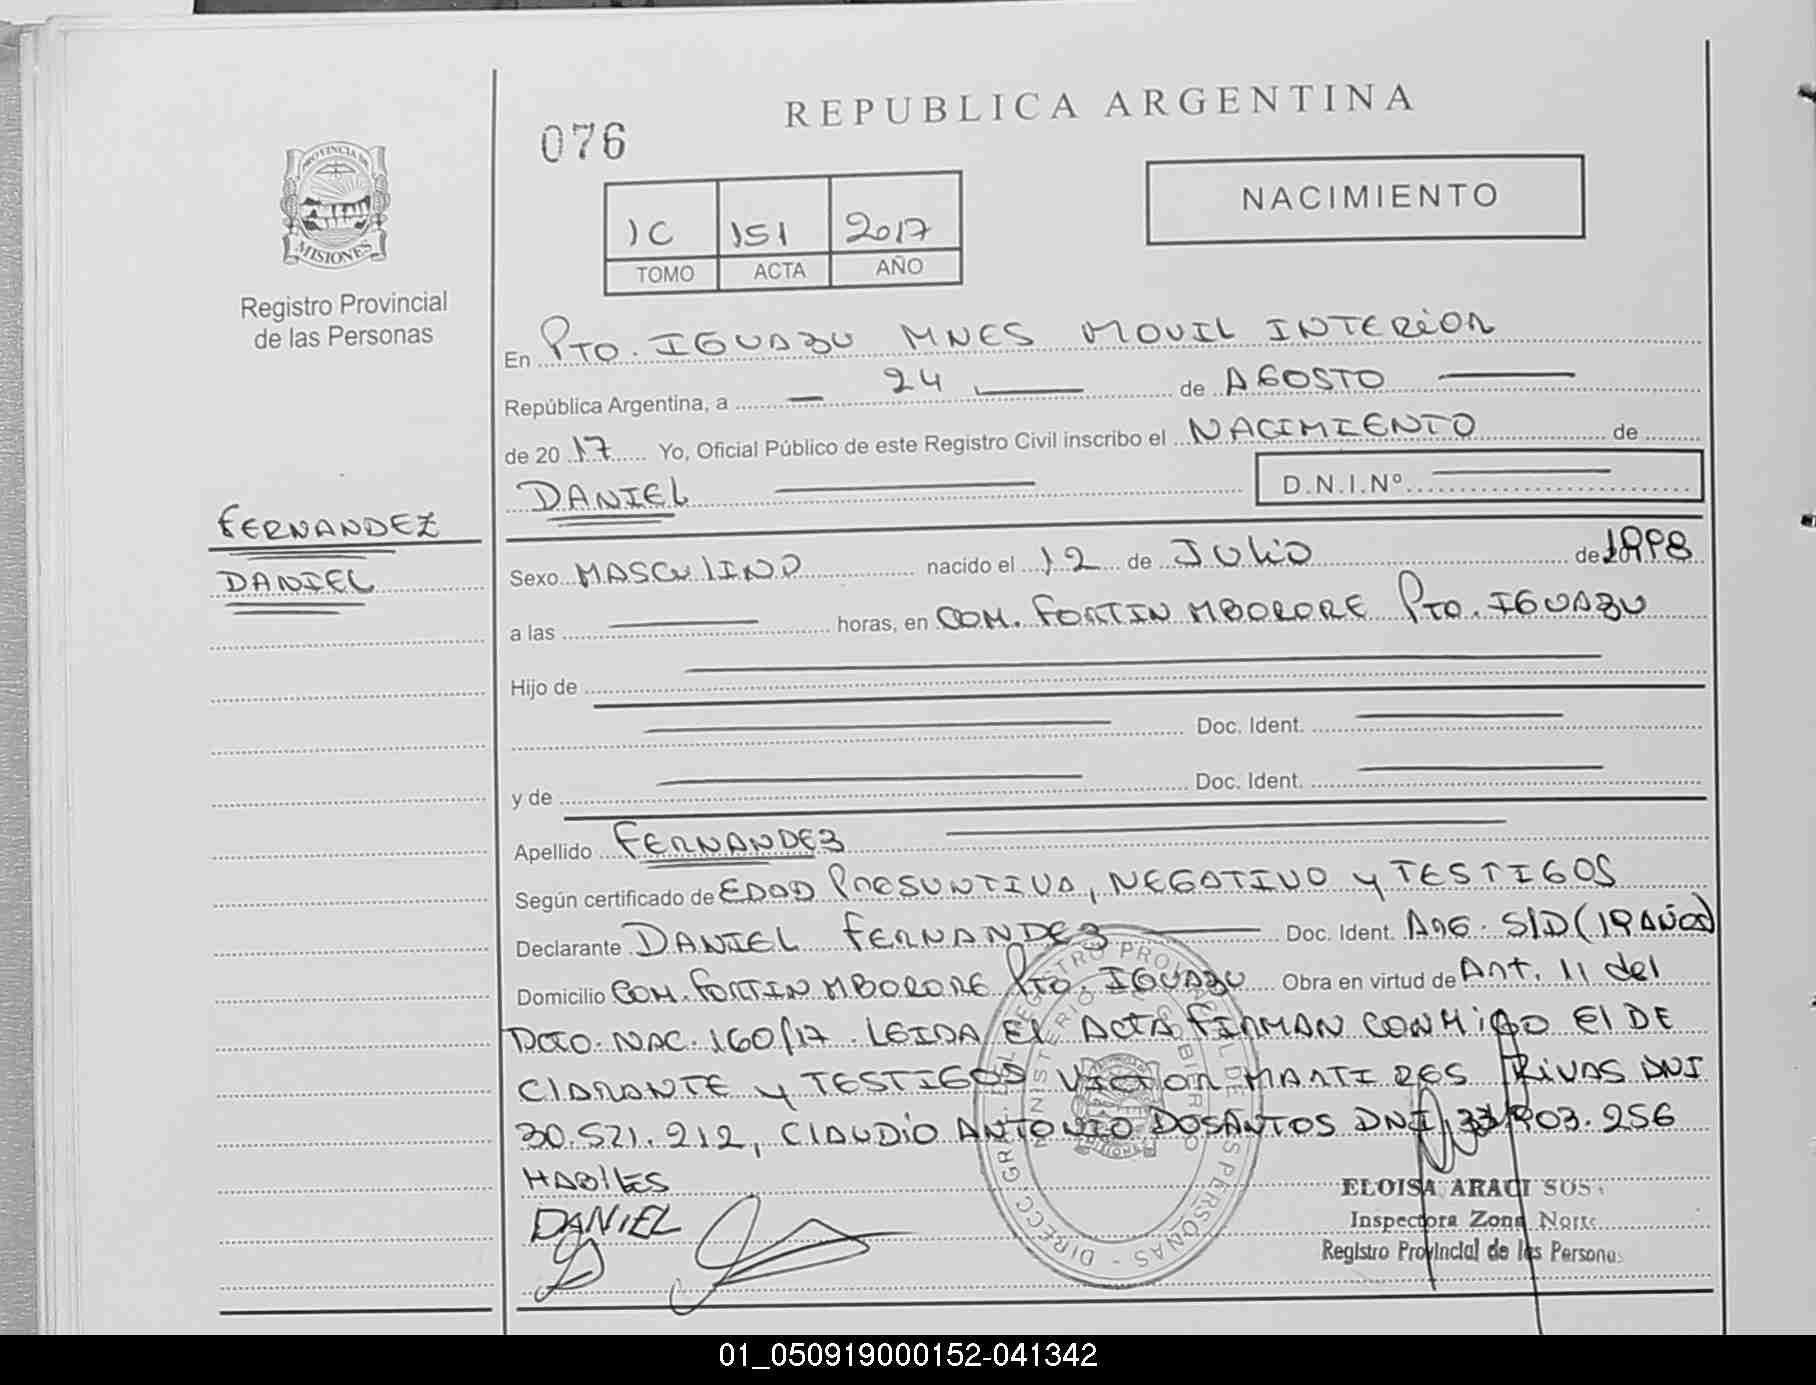 REPUBLICA ARGENTINA
076
NACIMIENTO
1C 151 2017
TOMO ACTA AÑO
PROVINCIA DE
MISIONES
Registro Provincial
de las Personas
FERNANDEZ
DANIEL
En PTO. IGUAZU MNES MOVIL INTERIOR
República Argentina, a 24 de AGOSTO
de 2017 Yo, Oficial Público de este Registro Civil inscribo el NACIMIENTO de
DANIEL D.N.I.Nº
Sexo MASCULINO nacido el 12 de JULIO de 1998
a las horas, en COM. FORTIN MBORORE PTO. IGUAZU
Hijo de
Doc. Ident.
y de Doc. Ident.
Apellido FERNANDEZ
Según certificado de EDAD PRESUNTIVA, NEGATIVO y TESTIGOS
Declarante DANIEL FERNANDEZ Doc. Ident. ARG. S/D (19 AÑOS)
Domicilio COM. FORTIN MBORORE PTO. IGUAZU Obra en virtud de Art. 11 del
DCTO. NAC. 160/17. LEIDA El ACTA FIRMAN CONMIGO El DE
CLARANTE y TESTIGOS VICTOR MARTIRES RIVAS DNI
30.521.212, CLAUDIO ANTONIO DOSANTOS DNI 33.903.256
HABILES
DANIEL
ELOISA ARACI SOSA
Inspectora Zona Norte
Registro Provincial de las Personas
01_050919000152-041342